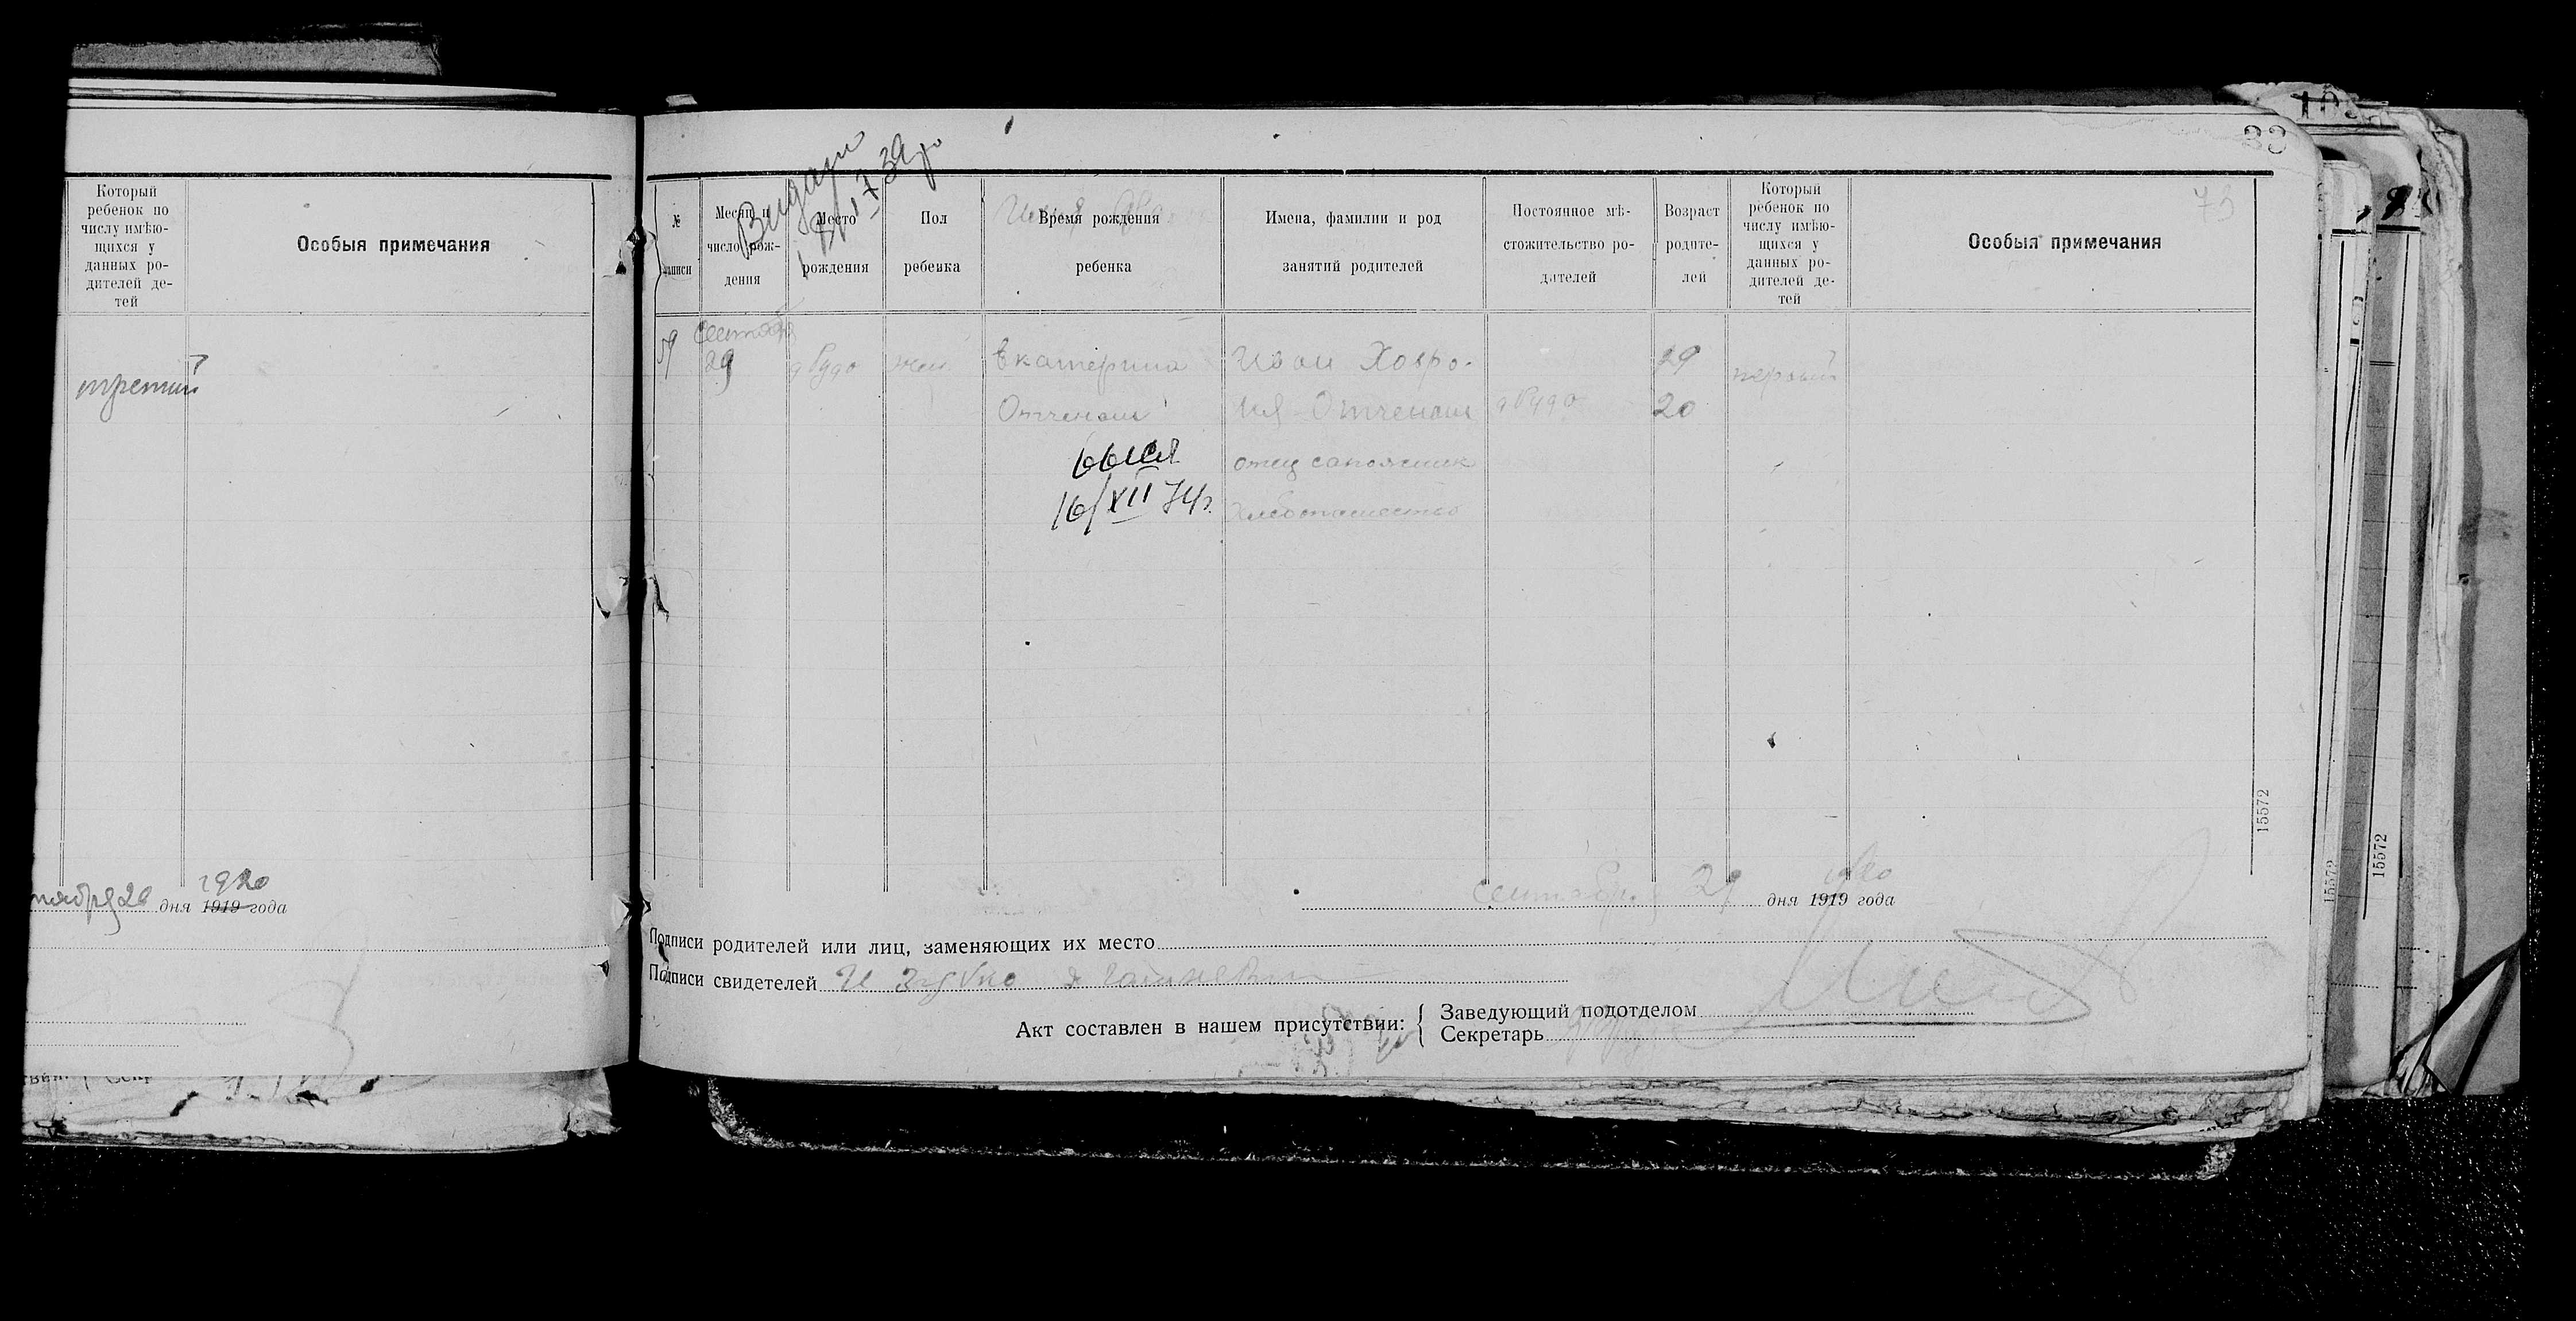 Который
ребенок по
числу имѣю-
щихся у
данных ро-
дителей де-
тей
Особыя примечания
третий
тября 28 дня 1919 года
1920
33
73
Видано
17 39 р
№
записи
Месяц и
число рож-
дения
Место
рождения
Пол
ребенка
Время рождения
ребенка
Имена, фамилии и род
занятий родителей
Постоянное мѣ-
стожительство ро-
дителей
Возраст
родите-
лей
Который
ребенок по
числу имѣю-
щихся у
данных ро-
дителей де-
тей
Особыя примечания
59
сентябр
29
жен.
Екатерина
Отченаш
Иван Хавро-
ния Отченаш
29
20
первый
16/XII 74г.
отец сапожник
хлебопашество
15572
15572
15572
сентября 29 дня 1919 года
1920
Подписи родителей или лиц, заменяющих их место
Подписи свидетелей И
Акт составлен в нашем присутствии:
Заведующий подотделом
Секретарь